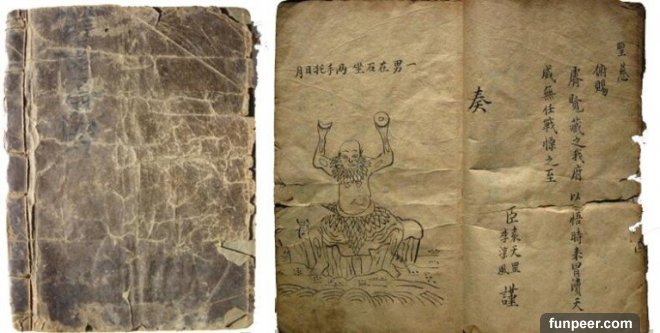 聖慈
俯賜
覽藏之府以悟時来冒瀆天
威無任戰慄之至
臣袁天罡
李淳風
謹
奏
一男在石坐兩手托日月
funpeer.com